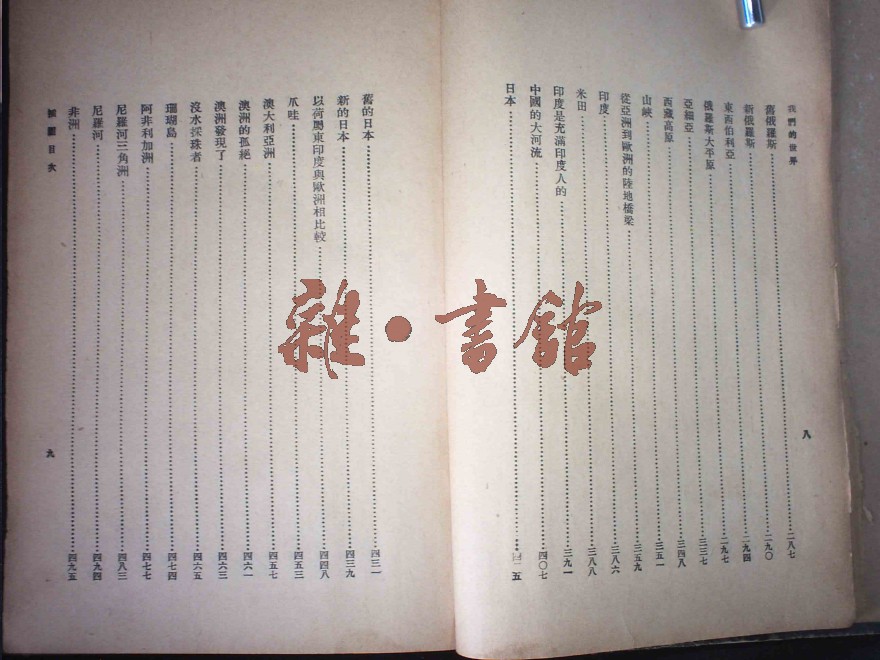 我們的世界
八
舊俄羅斯……二八七
新俄羅斯……二九〇
東西伯利亞……二九四
俄羅斯大平原……二九七
亞細亞……三三七
西藏高原……三四八
山峽……三五一
從亞洲到歐洲的陸地橋梁……三五九
印度……三八六
米田……三八八
印度是充滿印度人的……三九一
中國的大河流……四〇七
日本……四二五
舊的日本……四三一
新的日本……四三九
以荷屬東印度與歐洲相比較……四四八
爪哇……四五三
澳大利亞洲……四五七
澳洲的孤絕……四六一
澳洲發現了……四六三
沒水採珠者……四六五
珊瑚島……四七四
阿非利加洲……四七七
尼羅河三角洲……四八三
尼羅河……四九四
非洲……四九五
插圖目次
九
雜·書館